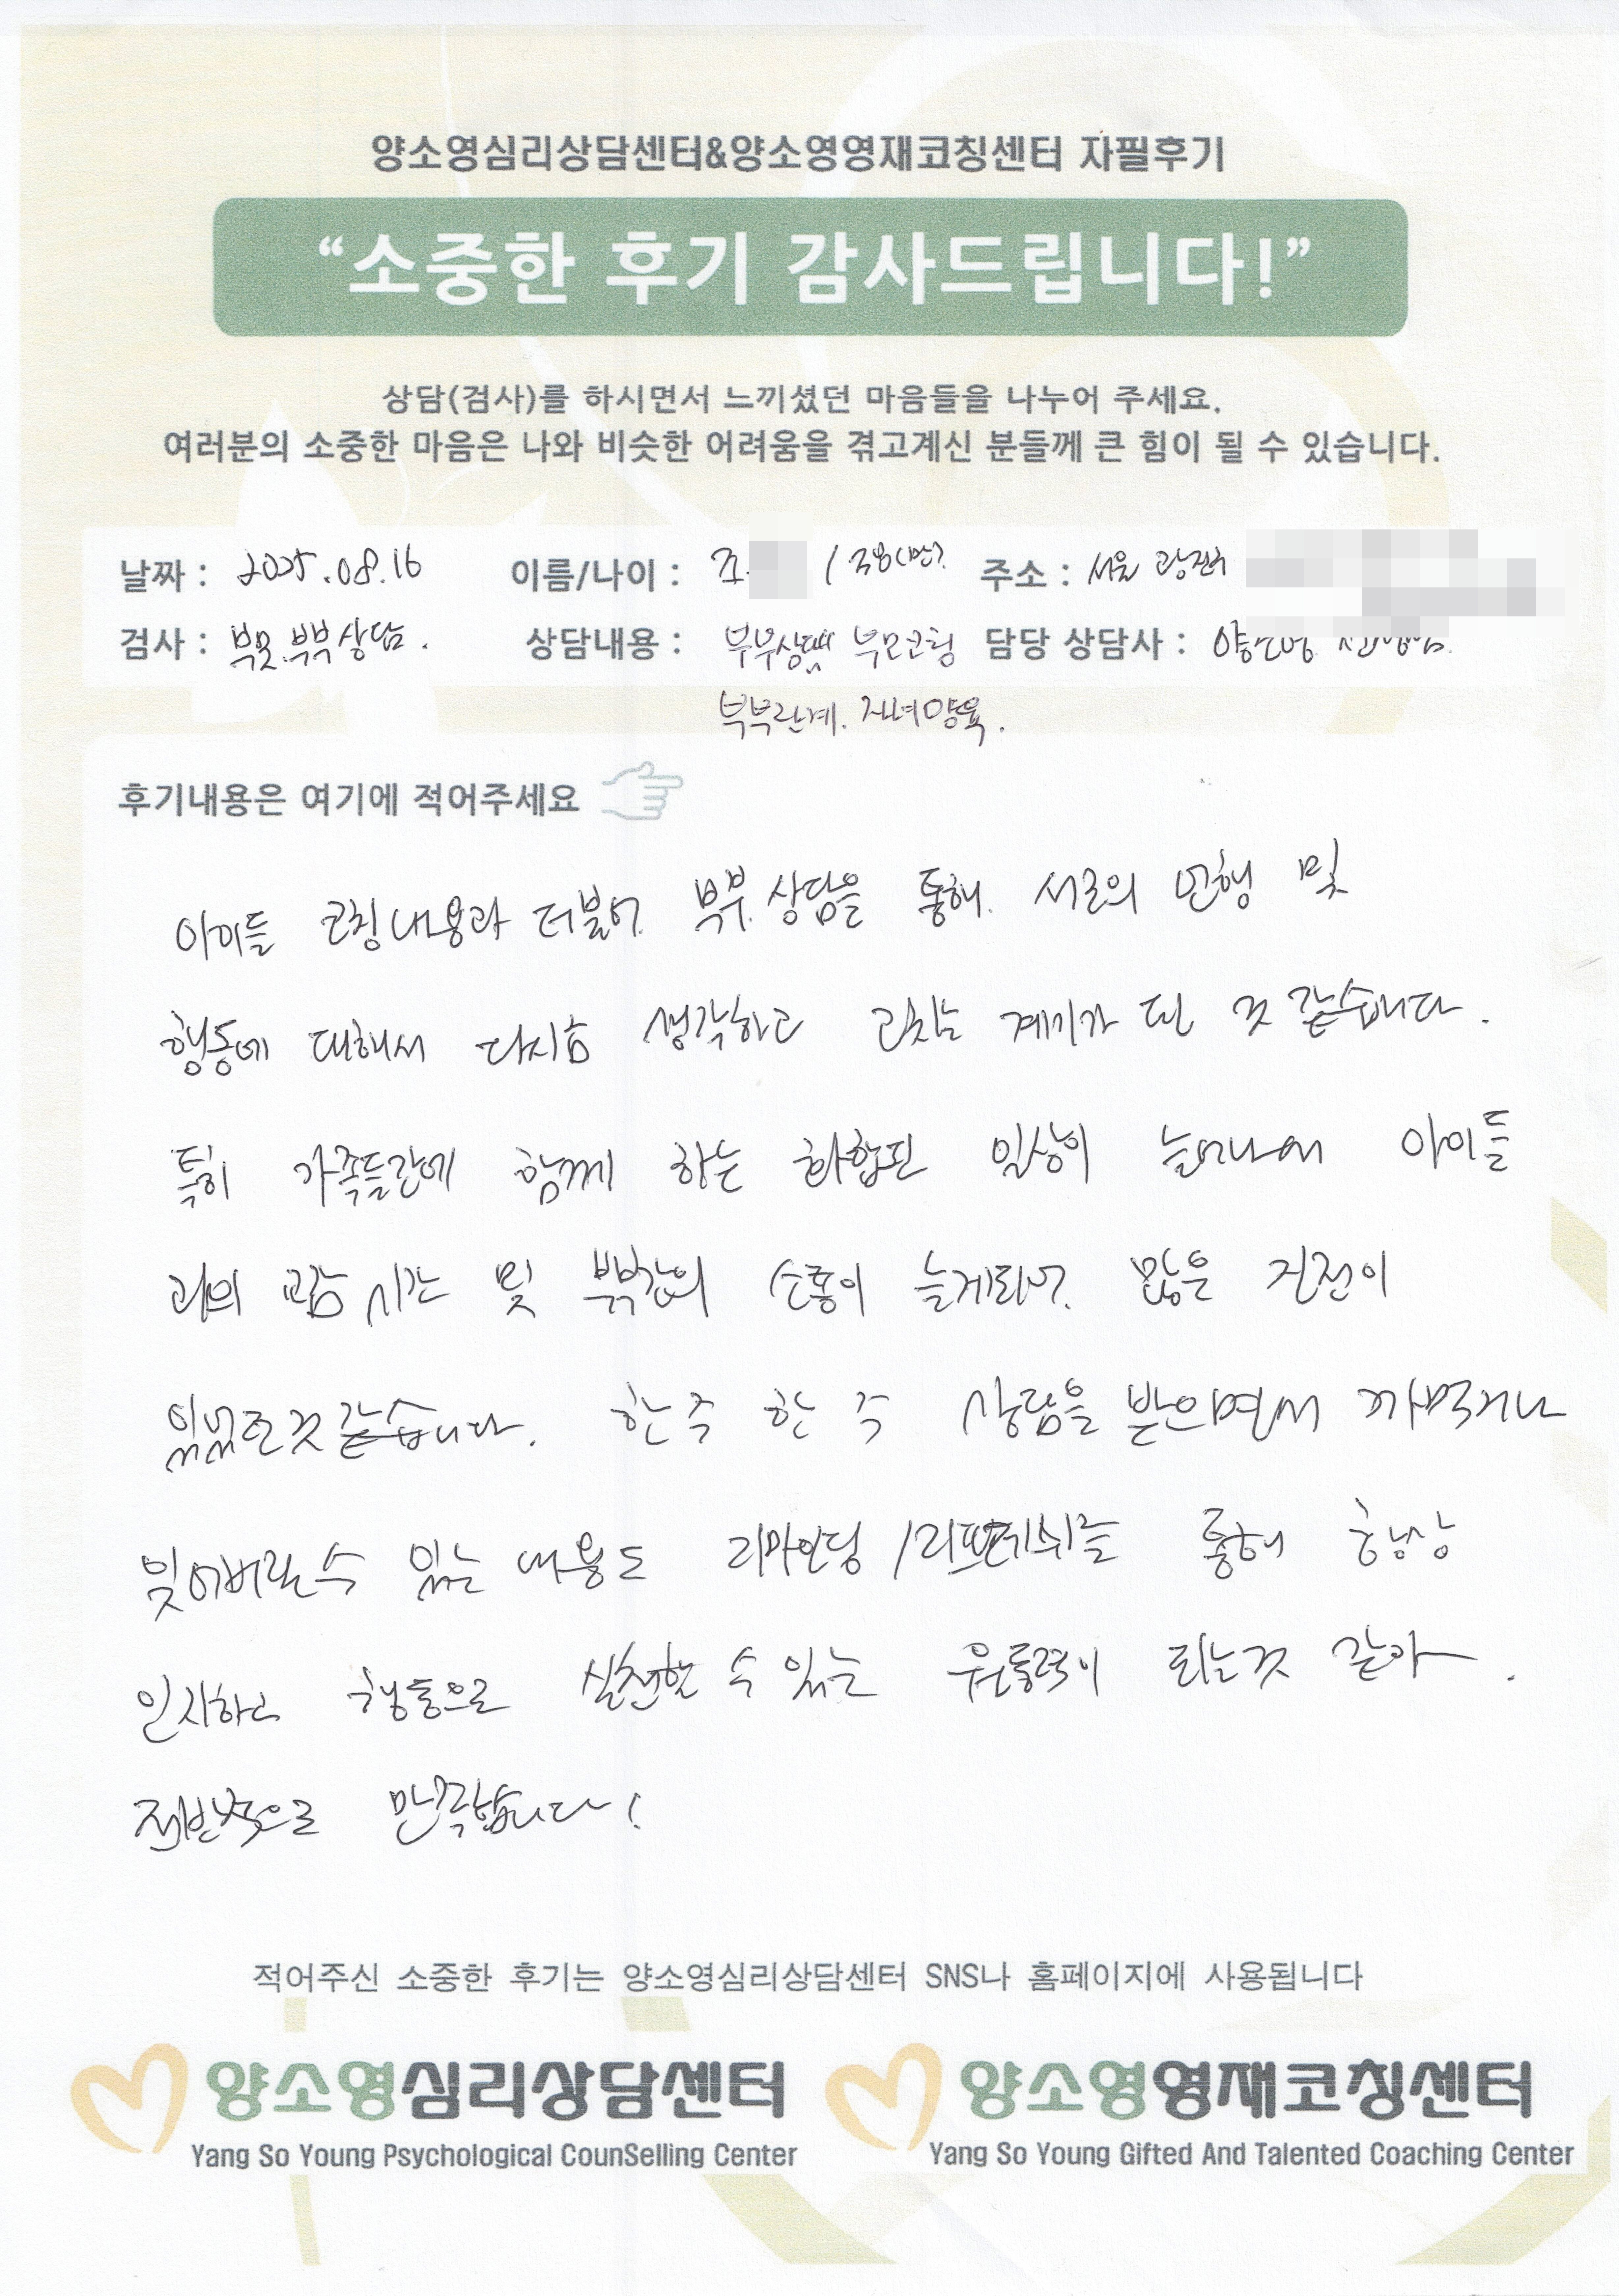 양소영심리상담센터&양소영영재코칭센터 자필후기
“소중한 후기 감사드립니다!”
상담(검사)를 하시면서 느끼셨던 마음들을 나누어 주세요.
여러분의 소중한 마음은 나와 비슷한 어려움을 겪고계신 분들께 큰 힘이 될 수 있습니다.
날짜 : 2025.08.16 이름/나이 : 조 / 38(만) 주소 : 서울 광진구
검사 : 부모.부부상담. 상담내용 : 부부상담 부모코칭 담당 상담사 : 양소영 선생님
부부관계. 자녀양육.
후기내용은 여기에 적어주세요
아이들 코칭내용과 더불어 부부 상담을 통해 서로의 언행 및
행동에 대해서 다시금 생각하고 고치는 계기가 된 것 같습니다.
특히 가족들간에 함께 하는 화합된 일상이 늘어나서 아이들
과의 교감 시간 및 부부간의 소통이 늘게되어 많은 진전이
있었던것 같습니다. 한 주 한 주 상담을 받으면서 까먹거나
잊어버릴수 있는 내용도 리마인딩 /리프레쉬를 통해 항상
인지하고 행동으로 실천할 수 있는 원동력이 되는것 같아 .
전반적으로 만족합니다!
적어주신 소중한 후기는 양소영심리상담센터 SNS나 홈페이지에 사용됩니다
양소영심리상담센터 양소영영재코칭센터
Yang So Young Psychological CounSelling Center Yang So Young Gifted And Talented Coaching Center